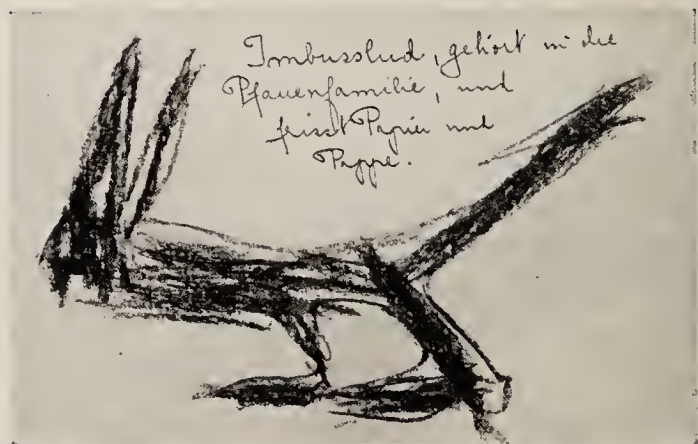 Imbusslud, gehört in die
Pfauenfamilie, und
frisst Papier und
Pappe.